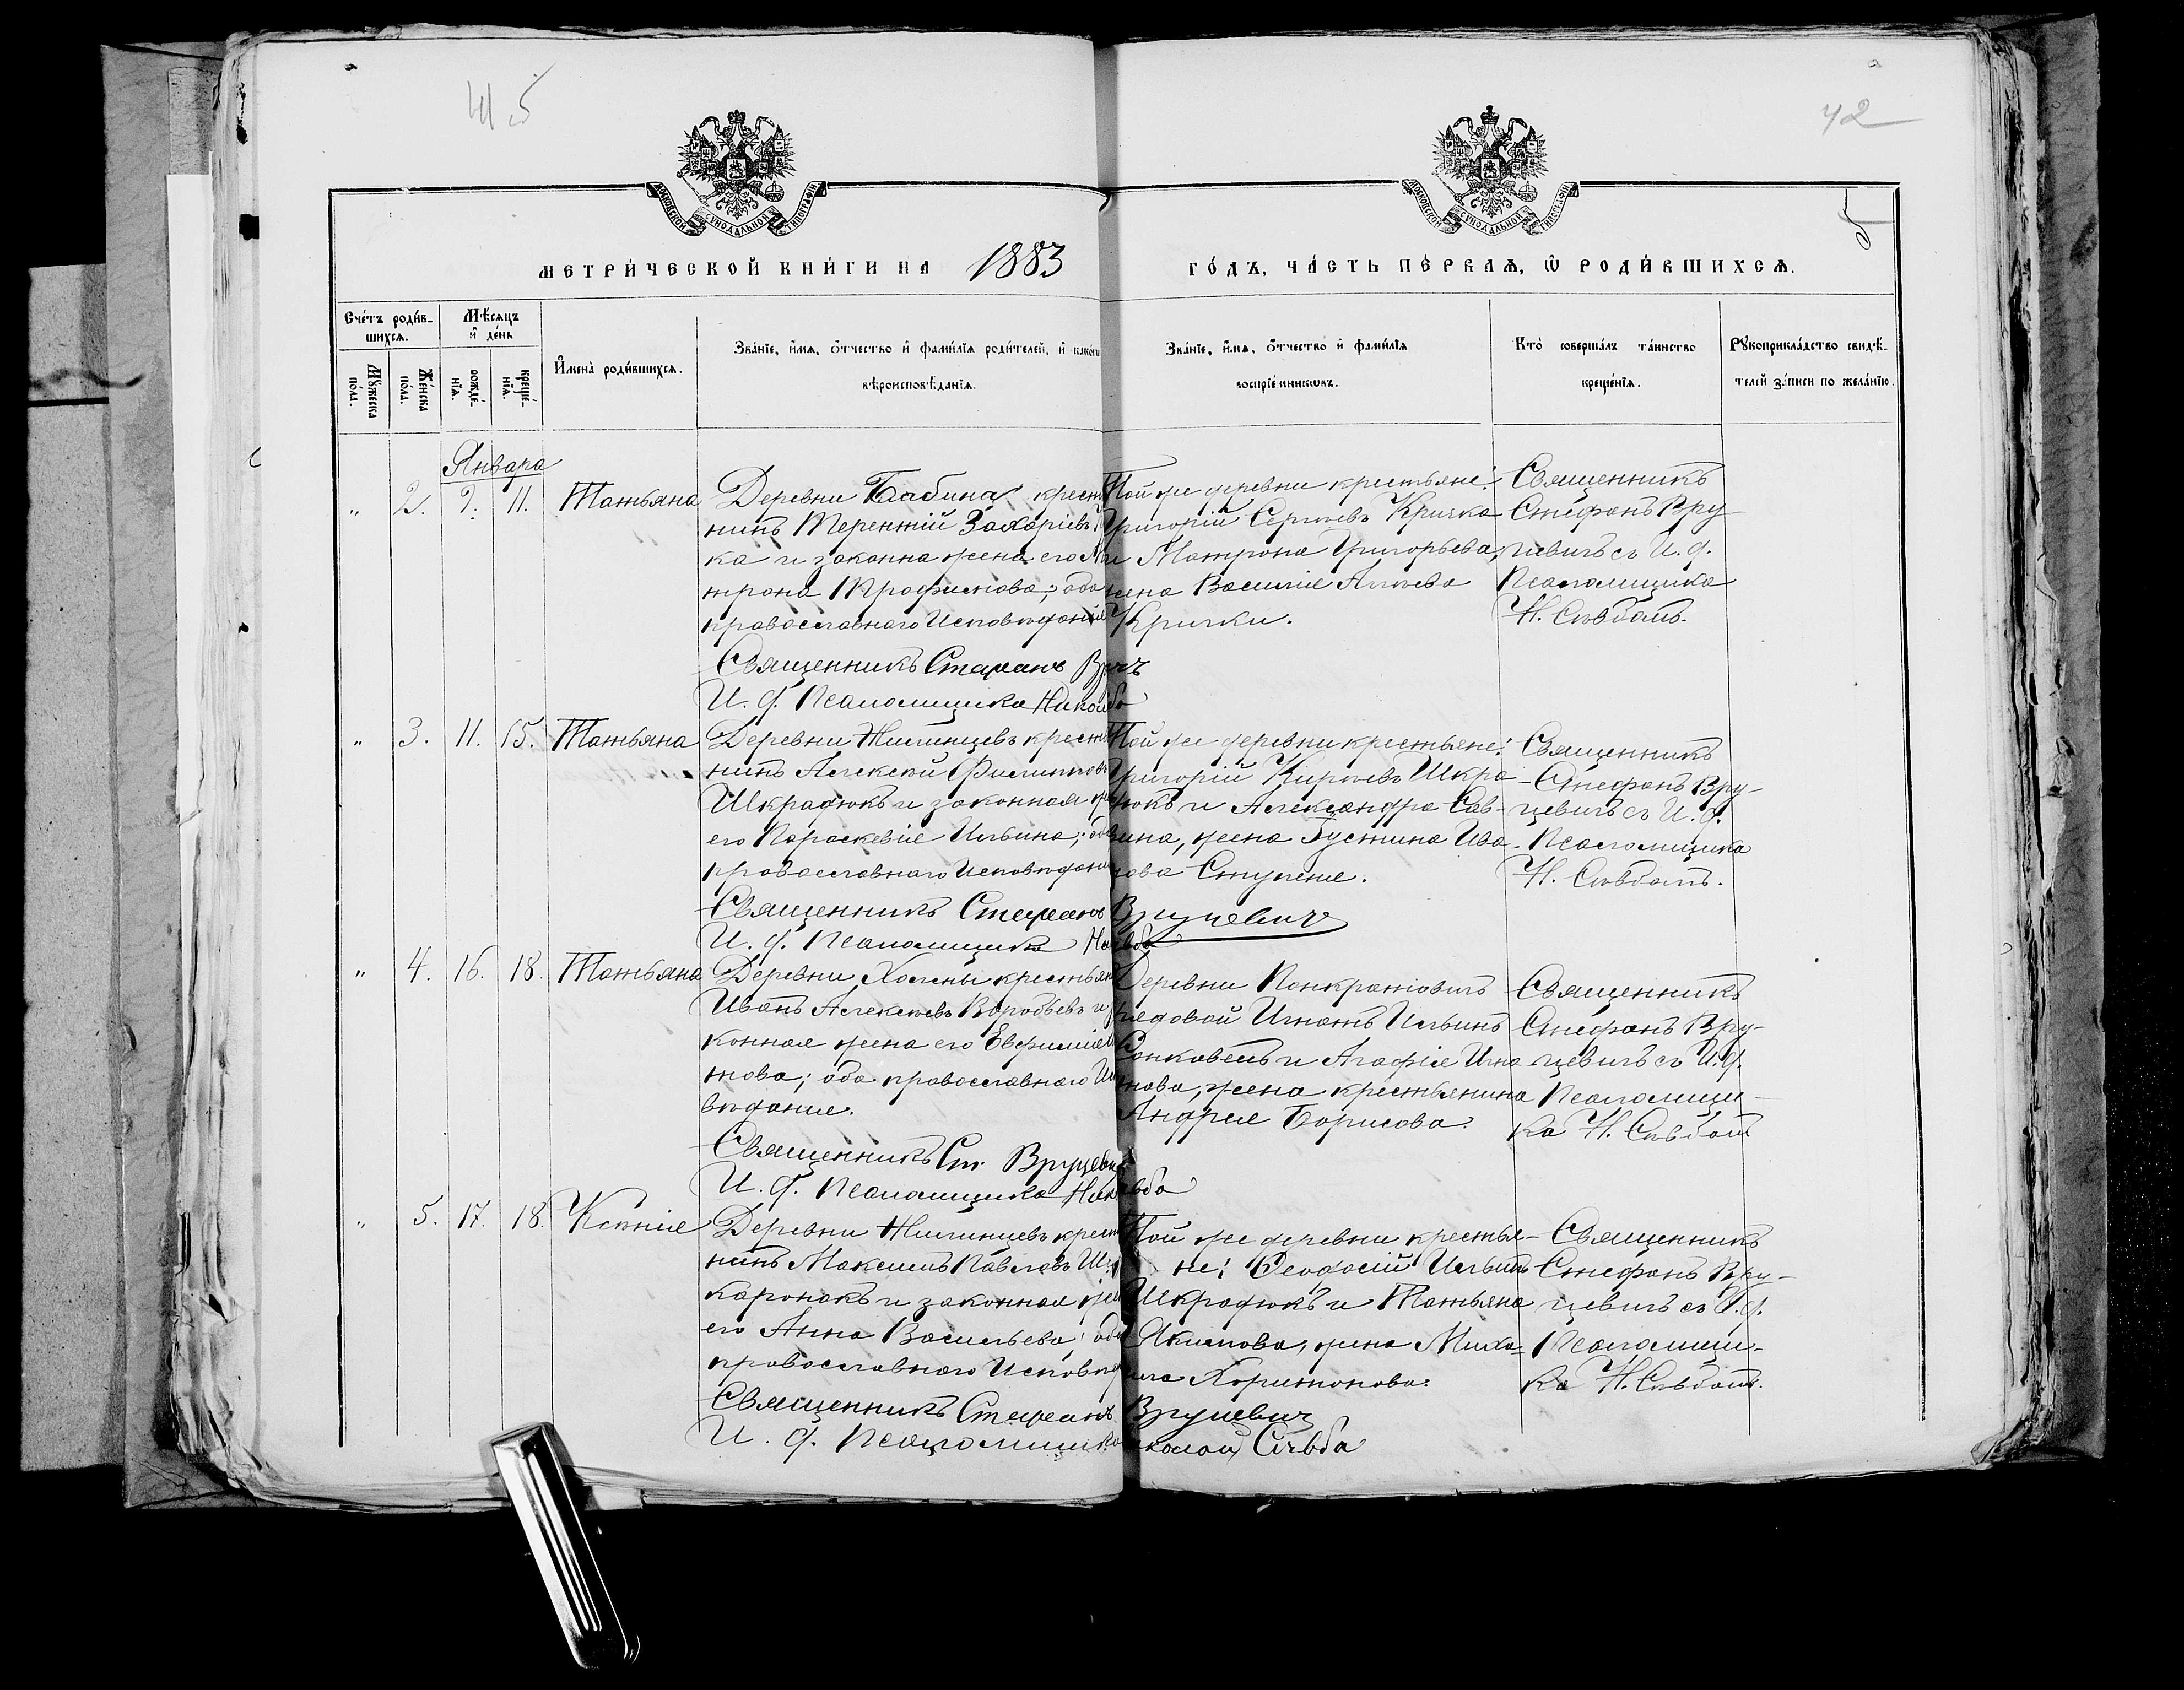 415
42
5
МОСКОВСКОЙ СѴНОДАЛЬНОЙ ТИПОГРАФІИ
МОСКОВСКОЙ СѴНОДАЛЬНОЙ ТИПОГРАФІИ
МЕТРИ́ЧЕСКОЙ КНИ́ГИ НА 1883 ГО́ДЪ, ЧА́СТЬ ПЕ́РВАѦ, Ѡ҆ РОДИ́ВШИХСѦ.
Сче́тъ роди́вшихсѧ.
Мꙋ́жеска по́ла.
Же́нска по́ла.
Мѣ́сѧцъ и҆ де́нь
рожде́нїѧ.
креще́нїѧ.
И҆мена̀ роди́вшихсѧ.
Зва́нїе, и҆́мѧ, ѻ҆́тчество и҆ фами́лїѧ роди́телей, и҆ како́гѡ
вѣроисповѣ́данїѧ.
Зва́нїе, и҆́мѧ, ѻ҆́тчество и҆ фами́лїѧ
воспрїе́мникѡвъ.
Кто̀ соверша́лъ та́инство
креще́нїѧ.
Рꙋкоприкла́дство свидѣ́-
телей за́писи по жела́нїю.
Января
„ 2. 9. 11. Татьяна
Деревни Бабина крест
нинъ Терентій Захаріевъ
ка и законна жена его
трона Трофимова; оба
православнаго Исповѣданія
Священникъ Стефанъ
И. д. Псаломщика
Той же деревни крестьяне:
Григорій Сергѣевъ Кричка
и Матрона Григорьева,
жена Василія
Крички.
Священникъ
Стефанъ Вру-
цевичъ съ И. д.
Псаломщика
Н. Сѣвбатъ.
„ 3. 11. 15. Татьяна
Деревни Жилинцевъ крестья
нинъ Алексѣй Филиповъ
Шкрадюкъ и законная
его Параскевія Ильина; оба
православнаго Исповѣданія
Священникъ Стефанъ Вруцевичъ
И. д. Псаломщика
Той же деревни крестьяне:
Григорій Кирѣевъ Шкра-
дюкъ и Александра Сав-
вина, жена Іустина Ива-
нова Ступеня.
Священникъ
Стефанъ Вру-
цевичъ съ И. д.
Псаломщика
Н. Сѣвбатъ.
„ 4. 16. 18. Татьяна
Деревни Холены крестьян
Иванъ Алексѣевъ Воробьевъ и
конная жена его Евфимія
това; оба православнаго Ис
вѣданія.
Священникъ Ст. Вруцевичъ
И. д. Псаломщика
Деревни Панкратовичъ
рядовой Игнатъ Ильинъ
и Агафія Игна
това, жена крестьянина
Андрея Борисова.
Священникъ
Стефанъ Вру-
цевичъ съ И. д.
Псаломщи-
ка Н. Сѣвбатъ
„ 5. 17. 18. Ксенія
Деревни Жилинцевъ крест
нинъ Максимъ Павловъ
и законная жен
его Анна Васильева; оба
православнаго Исповѣд
Священникъ Стефанъ Вруцевичъ
И. д. Псаломщика
Той же деревни крестья-
не: Ѳеодосій Ильинъ
Шкрадюкъ и Татьяна
Якимова, жена Миха-
ила Харитонова.
Священникъ
Стефанъ Вру-
цевичъ съ И. д.
Псаломщи-
ка Н. Сѣвбатъ.